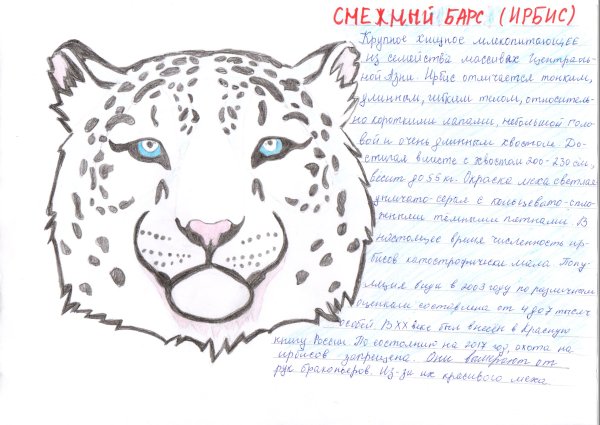 СМЕЖНЫЙ БАРС (ИРБИС)
Крупное хищное млекопитающее
из семейства массивах Централь-
ной Азии. Ирбис отличается тонким,
длинным, гибким телом, относитель-
но короткими лапами, небольшой голо-
вой и очень длинным хвостом. До-
стигая вместе с хвостом 200-230 см,
весит до 55 кг. Окраска меха светлая
дымчато-серая с кольцевато-спло-
жными тёмными пятнами. В
настоящее время численность ир-
бисов катострофически мала. Попу-
ляция вида в 2003 году по различным
оценкам составляла от 4 до 7 тысяч
особей. В XX веке был внесён в Красную
книгу России. По состоянию на 2017 год, охота на
ирбисов запрещена. Они вымирают от
рук браконьеров. Из-за их красивого меха